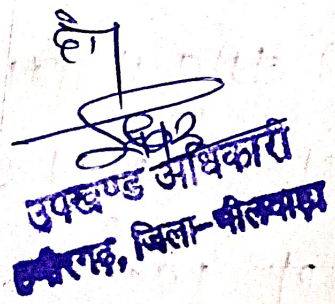 है।
उपखण्ड अधिकारी
हमीरगढ़, जिला-भीलवाड़ा